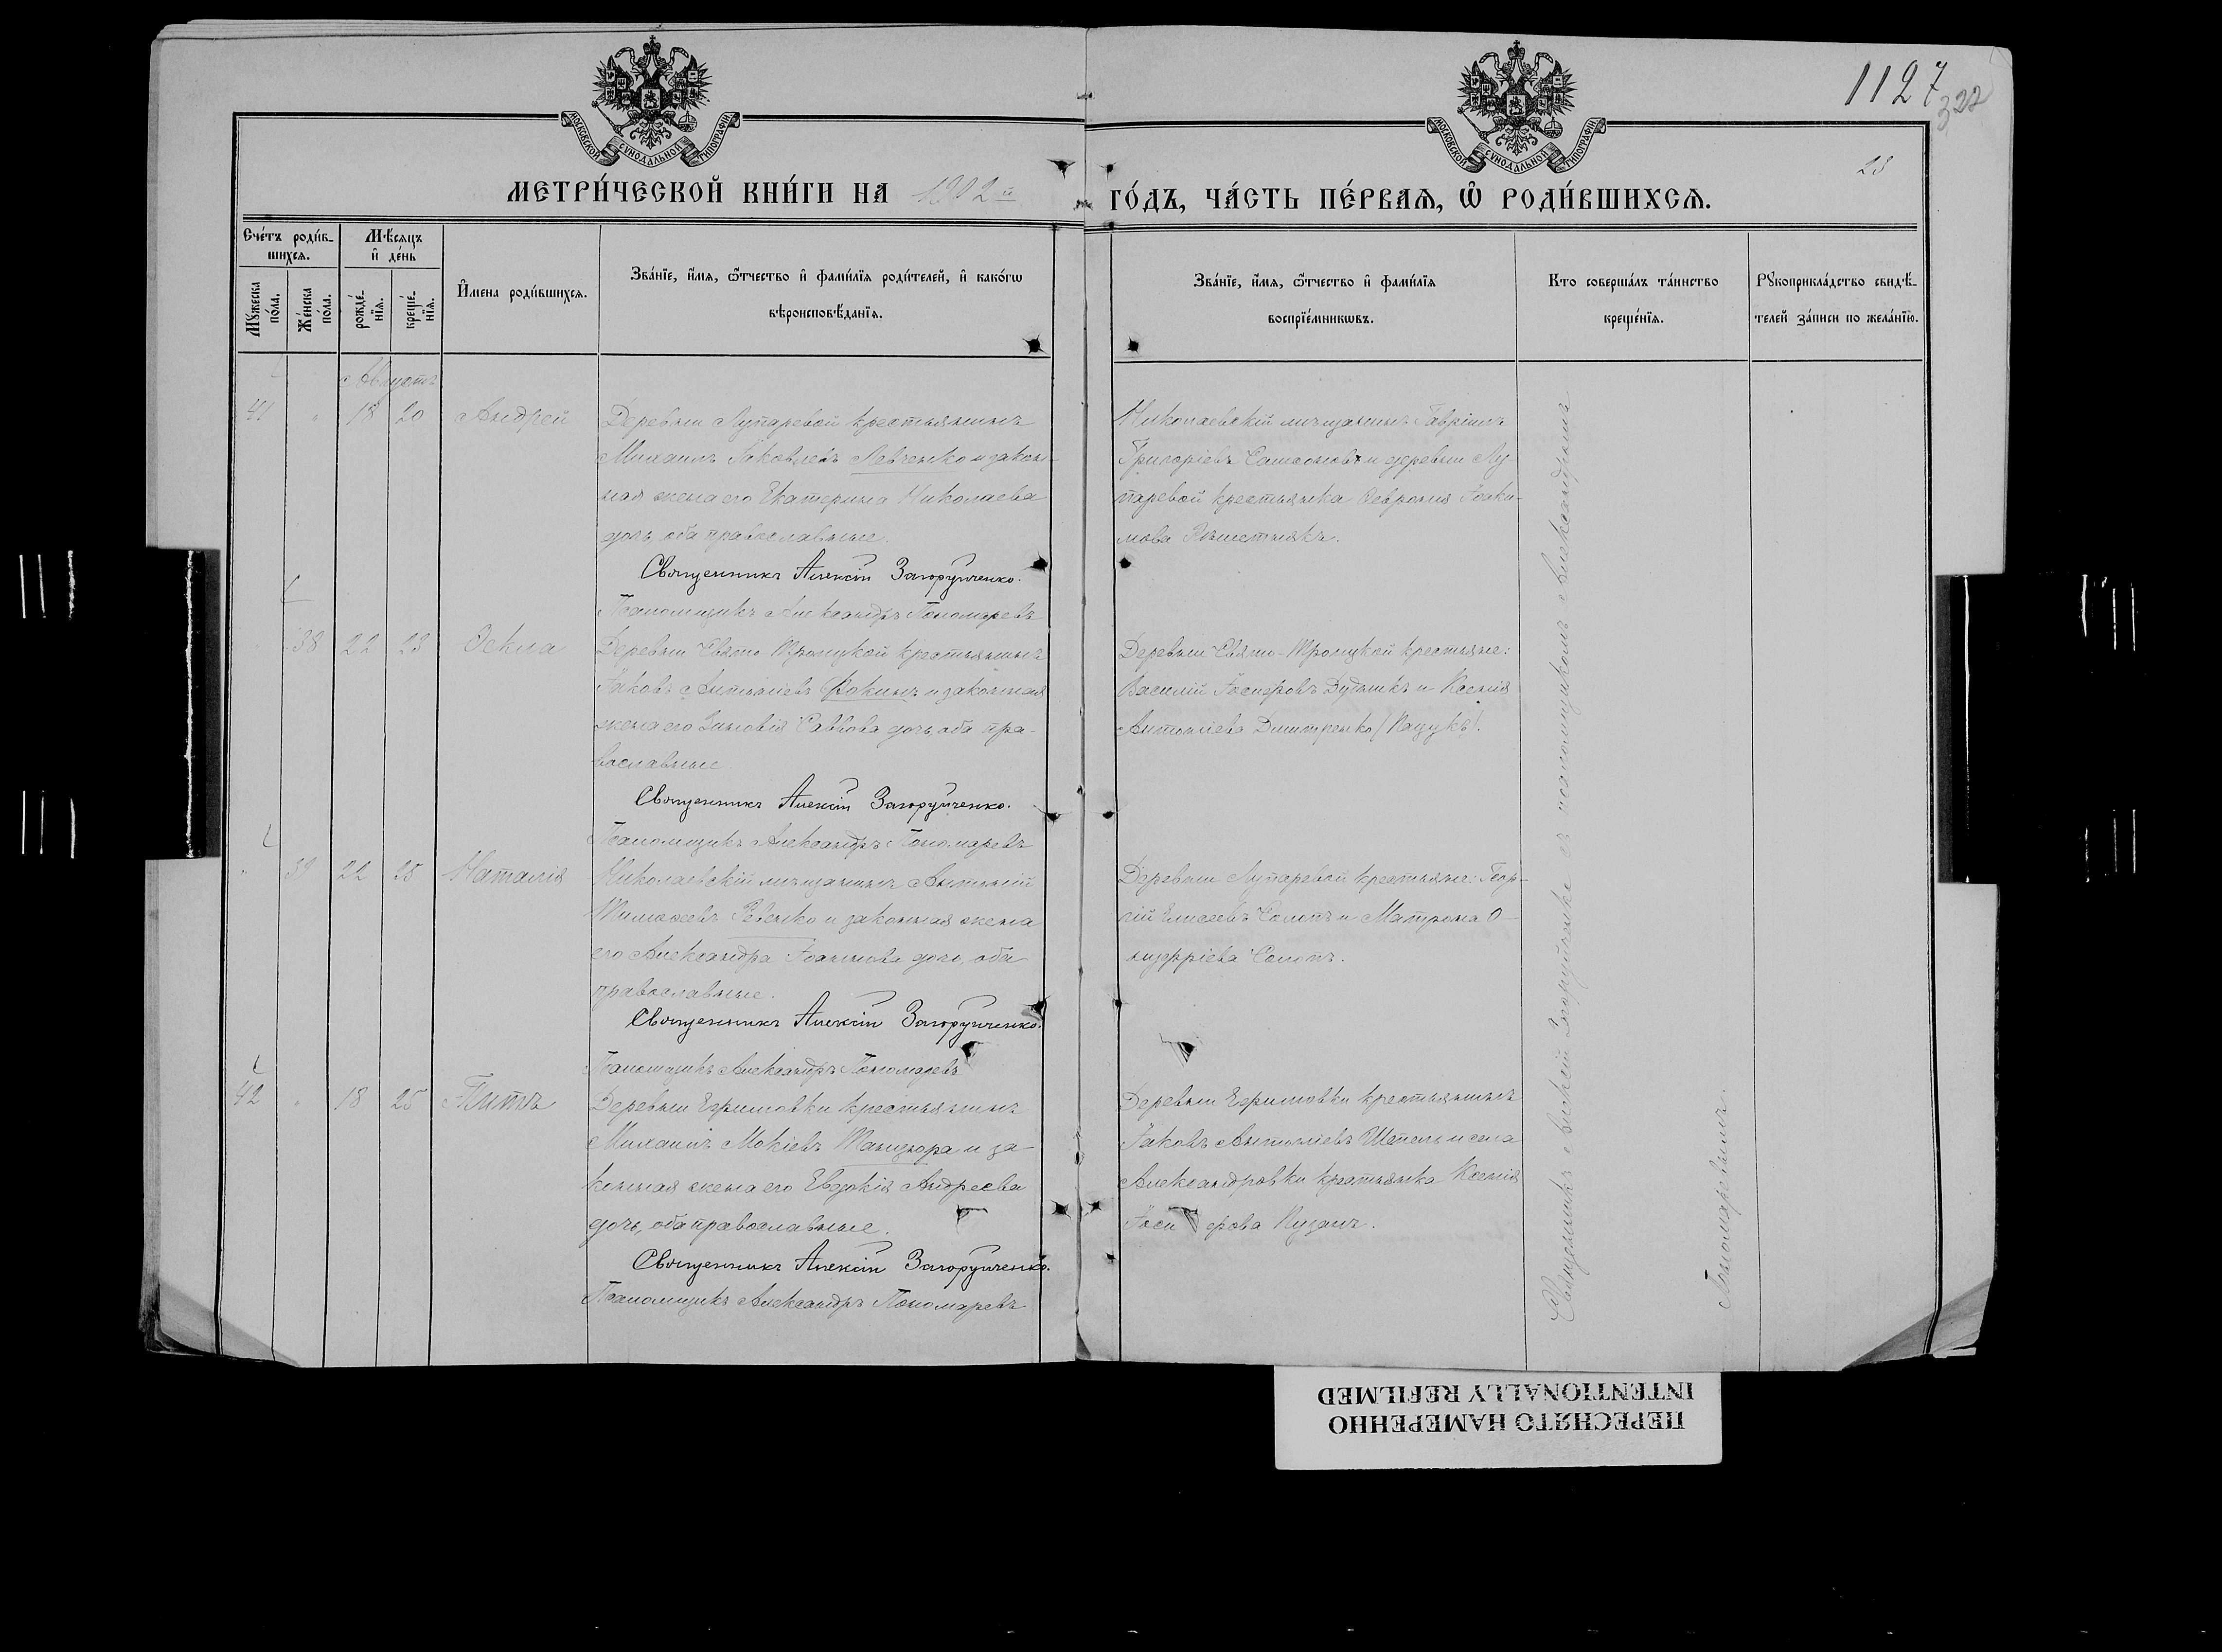 1127
322
23
МОСКОВСКОЙ СУНОДАЛЬНОЙ ТИПОГРАФІИ
МОСКОВСКОЙ СУНОДАЛЬНОЙ ТИПОГРАФІИ
МЕТРИ́ЧЕСКОЙ КНИ́ГИ НА 1902 й
ГО́ДЪ, ЧА́СТЬ ПЕ́РВАѦ, Ѡ҆ РОДИ́ВШИХСѦ.
Сче́тъ роди́в-
шихсѧ.
Мꙋ́жеска по́ла.
Же́нска по́ла.
Мѣ́сѧцъ и҆ де́нь
рожде́-нїѧ.
креще́-нїѧ.
И҆мена роди́вшихсѧ.
Зва́нїе, и҆́мѧ, ѻ҆́тчество и҆ фами́лїѧ роди́телей, и҆ како́гѡ
вѣроисповѣ́данїѧ.
Зва́нїе, и҆́мѧ, ѻ҆́тчество и҆ фами́лїѧ
воспрїе́мникѡвъ.
Кто соверша́лъ та́инство
креще́нїѧ.
Рꙋкоприкла́дство свидѣ́-
телей за́писи по жела́нїю.
Августъ
41 " 18 20 Андрей
Деревни Лупаревой крестьянинъ
Михаилъ Яковлевъ Левченко и закон-
ная жена его Екатерина Николаева
дочь, оба православные.
Священникъ Алексій Загоруйченко.
Псаломщикъ Александръ Пономаревъ
Николаевскій мѣщанинъ Гавріилъ
Григоріевъ Самсоновъ и деревни Лу-
паревой крестьянка Ѳевронія Іоаки-
мова Рѣшетнякъ.
38 22 23 Ѳекла
Деревни Свято-Троицкой крестьянинъ
Іаковъ Антоніевъ Вокинъ и законная
жена его Зиновія Саввова дочь, оба пра-
вославные
Священникъ Алексій Загоруйченко.
Псаломщикъ Александръ Пономаревъ
Деревни Свято-Троицкой крестьяне:
Василій Іосифовъ Дудникъ и Ксенія
Антоніева Дмитренко (Пацукъ).
" 39 22 25 Наталія
Николаевскій мѣщанинъ Антоній
Тимоѳеевъ Ревенко и законная жена
его Александра Іоаннова дочь, оба
православные.
Священникъ Алексій Загоруйченко.
Псаломщикъ Александръ Пономаревъ
Деревни Лупаревой крестьяне: Геор-
гій Елисеевъ Солопъ и Матрона О-
нуфріева Солопъ.
42 " 18 25 Титъ
Деревни Ефимовки крестьянинъ
Михаилъ Мокіевъ Танцюра и за-
конная жена его Евдокія Андреева
дочь, оба православные.
Священникъ Алексій Загоруйченко.
Псаломщикъ Александръ Пономаревъ
Деревни Ефимовки крестьянинъ
Іаковъ Антоніевъ Шепель и села
Александровки крестьянка Ксенія
Іосифова Пузанъ.
Священникъ Алексій Загоруйченко съ псаломщикомъ Александромъ
Пономаревымъ.
ПЕРЕСНЯТО НАМЕРЕННО
INTENTIONALLY REFILMED